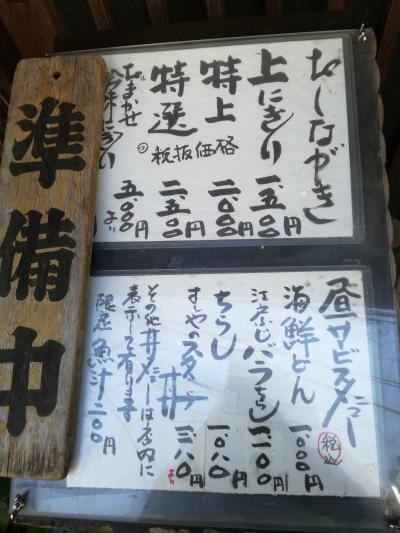 おしながき
上にぎり 一、五〇〇円
特上 二、〇〇〇円
特選 二、五〇〇円
税抜価格
おまかせ 五、〇〇〇円
より
昼サービスメニュー
税込
海鮮どん 一、〇〇〇円
江戸ふじバラちらし 一、二〇〇円
ちらし 一、〇八〇円
丼
その他丼メニューは店内に
表示して有ります
限定 魚汁二〇〇円
準備中